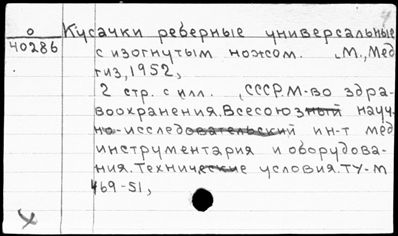 О Кусачки реберные универсальные
40286 с изогнутым ножом. М., Мед
гиз, 1952,
2 стр. с илл. (СССР М-во здра-
воохранения. Всесоюзный науч
но-исследовательский ин-т мед
инструментария и оборудова-
ния. Технические условия. ТУ-М
469-51,